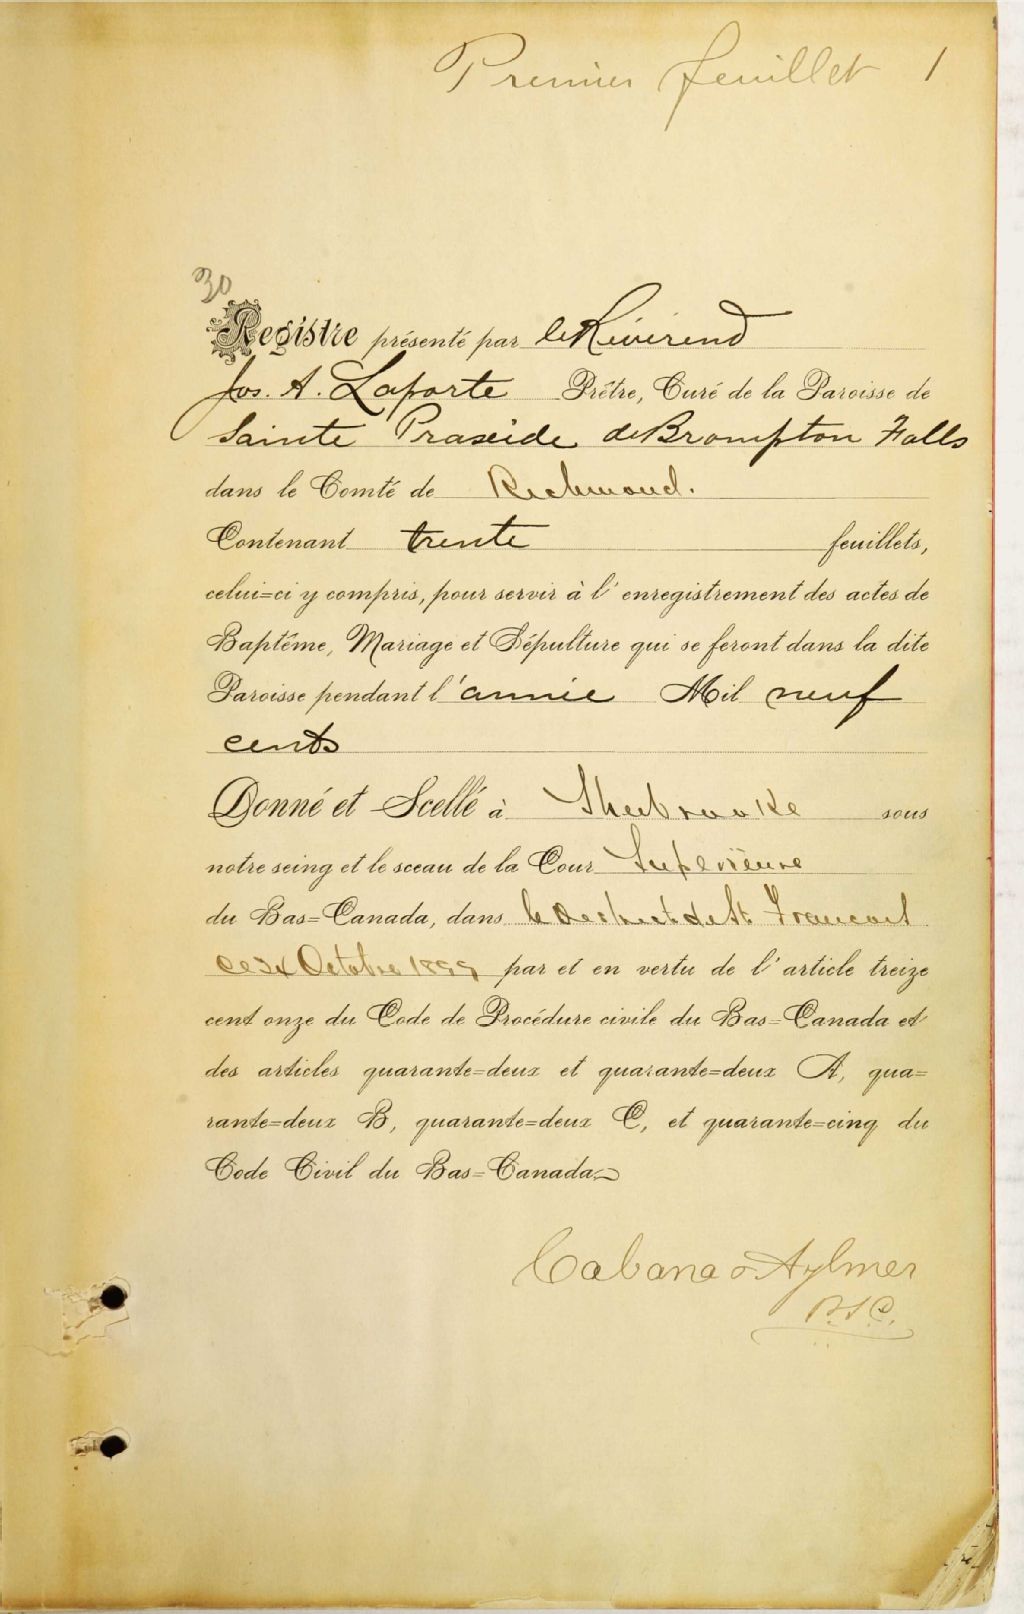 Premier feuillet 1
30
Registre présenté par le Révérend
Jos. A. Laporte Prêtre, Curé de la Paroisse de
Sainte Praxède de Brompton Falls
dans le Comté de Richmond.
Contenant trente feuillets,
celui=ci y compris, pour servir à l'enregistrement des actes de
Baptême, Mariage et Sépulture qui se feront dans la dite
Paroisse pendant l'année Mil neuf
cents
Donné et Scellé à Sherbrooke sous
notre seing et le sceau de la Cour Supérieure
du Bas=Canada, dans le District de St François
ce Octobre 1899 par et en vertu de l'article treize
cent onze du Code de Procédure civile du Bas=Canada et
des articles quarante=deux et quarante=deux A, qua=
rante=deux B, quarante=deux C, et quarante=cinq du
Code Civil du Bas=Canada.
Cabana & Aylmer
P.S.C.